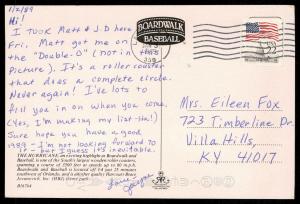 1/2/89
Hi!
I took Matt & J.D here
Fri. Matt got me on
the "Double-O" (not in this
Picture). It's a roller coaster
that does a complete circle.
Never again! I've lots to
fill you in on when you come.
(Yes, I'm making my list-Ha!)
Sure hope you have a good
1989 - I'm not looking forward to
it - but I guess it's inevitable.
THE HURRICANE, an exciting highlight at Boardwalk and
Baseball, is one of the South's largest wooden roller coasters,
spanning a course of 2600 feet at speeds up to 60 m.p.h.
Boardwalk and Baseball is located off I-4 just 25 minutes
southwest of Orlando, and is another quality Harcourt Brace
Jovanovich, Inc. (HBJ) theme park.
BOARDWALK
AND
BASEBALL
Mrs. Eileen Fox
723 Timberline Dr.
Villa Hills,
KY 41017